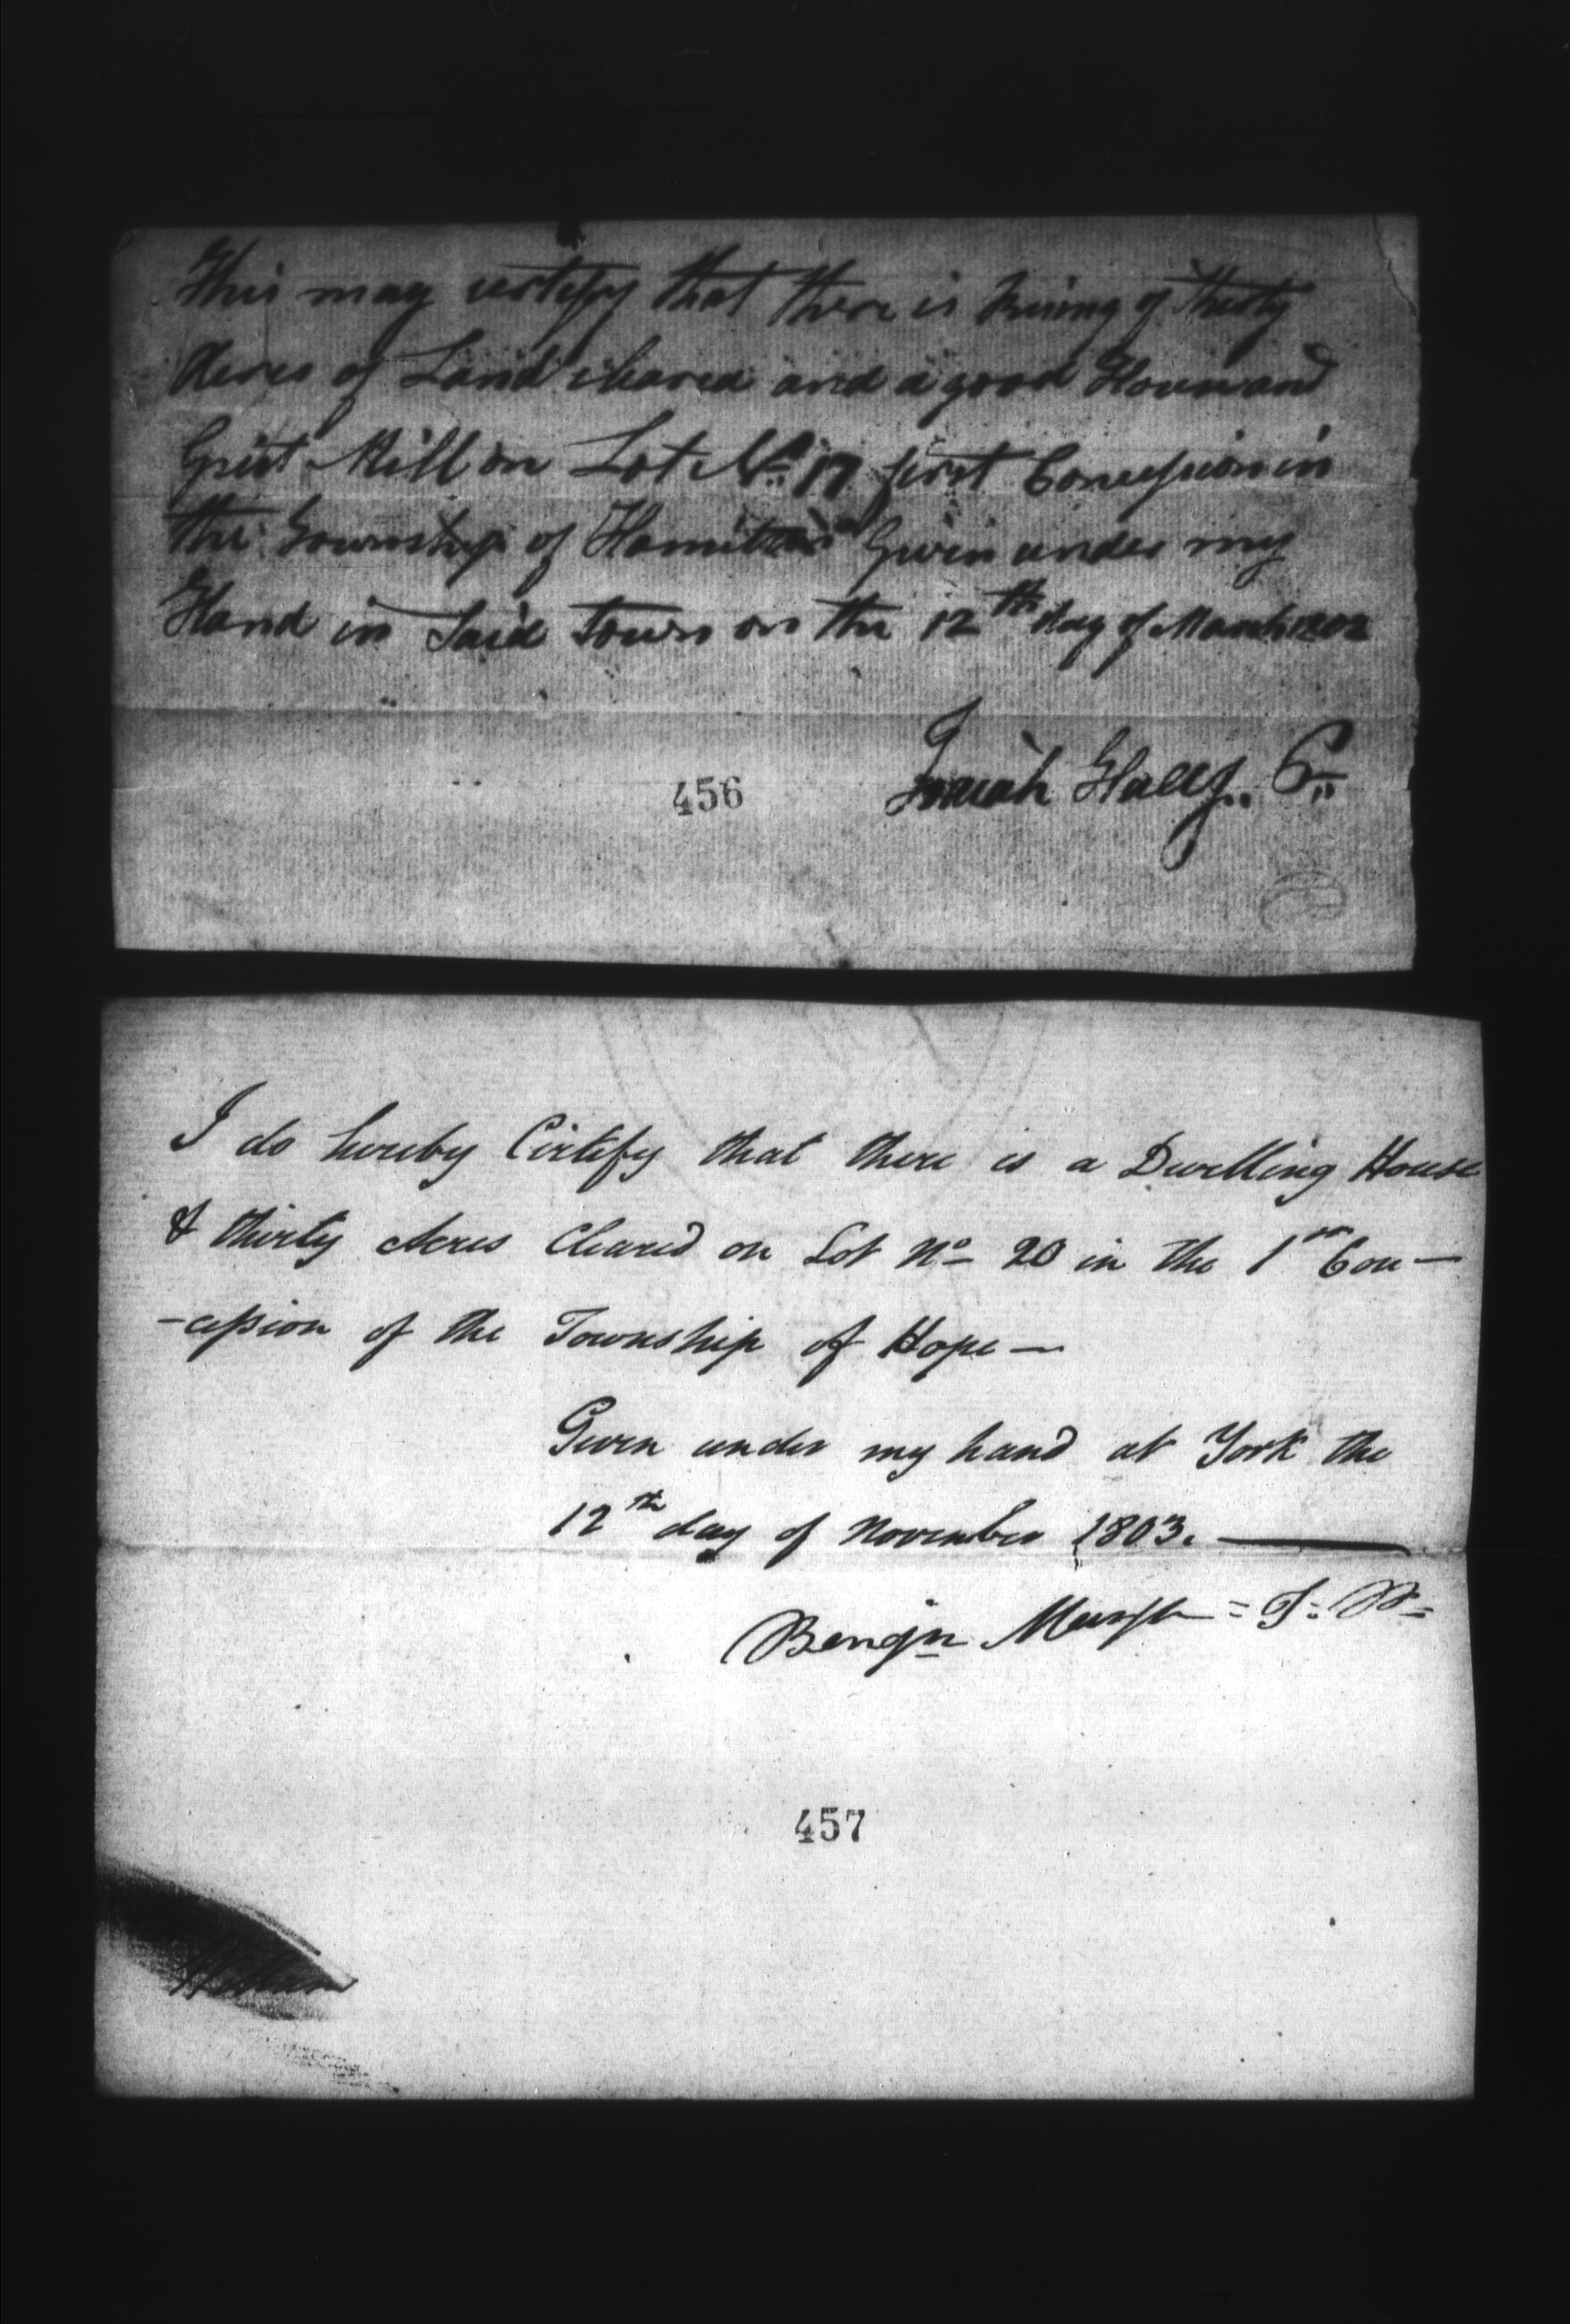 This may certefy that there is Runing of thirty
Acres of Land cleared and a good House and
Grist Mill on Lot No. 17 first Concession in
the Township of Hamilton Given under my
Hand in Said Town on the 12th day of March 1802
Josiah Hall J..
456
I do hereby Certify that there is a Dwelling House
& thirty Acres Cleared on Lot No 20 in the 1st Con—
-cession of the Township of Hope—
Given under my hand at York the
12th day of November 1803.
Benjn Marsh = J: P=
457